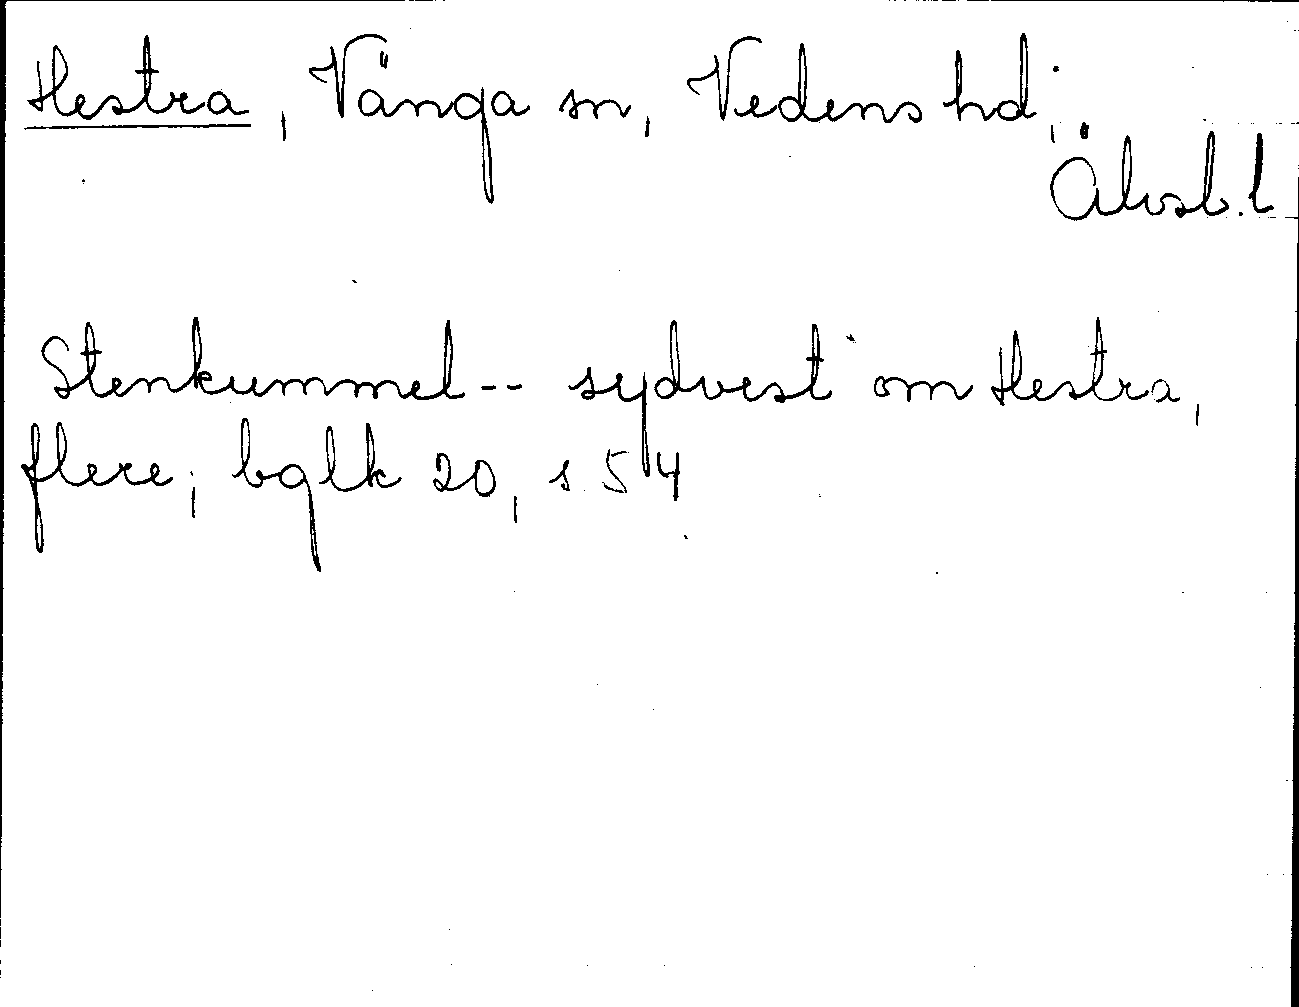 Hestra, Vänga sn, Vedens hd,
Älvsb. l
Stenkummel -- sydvest om Hestra,
flere; bglk 20, s 54